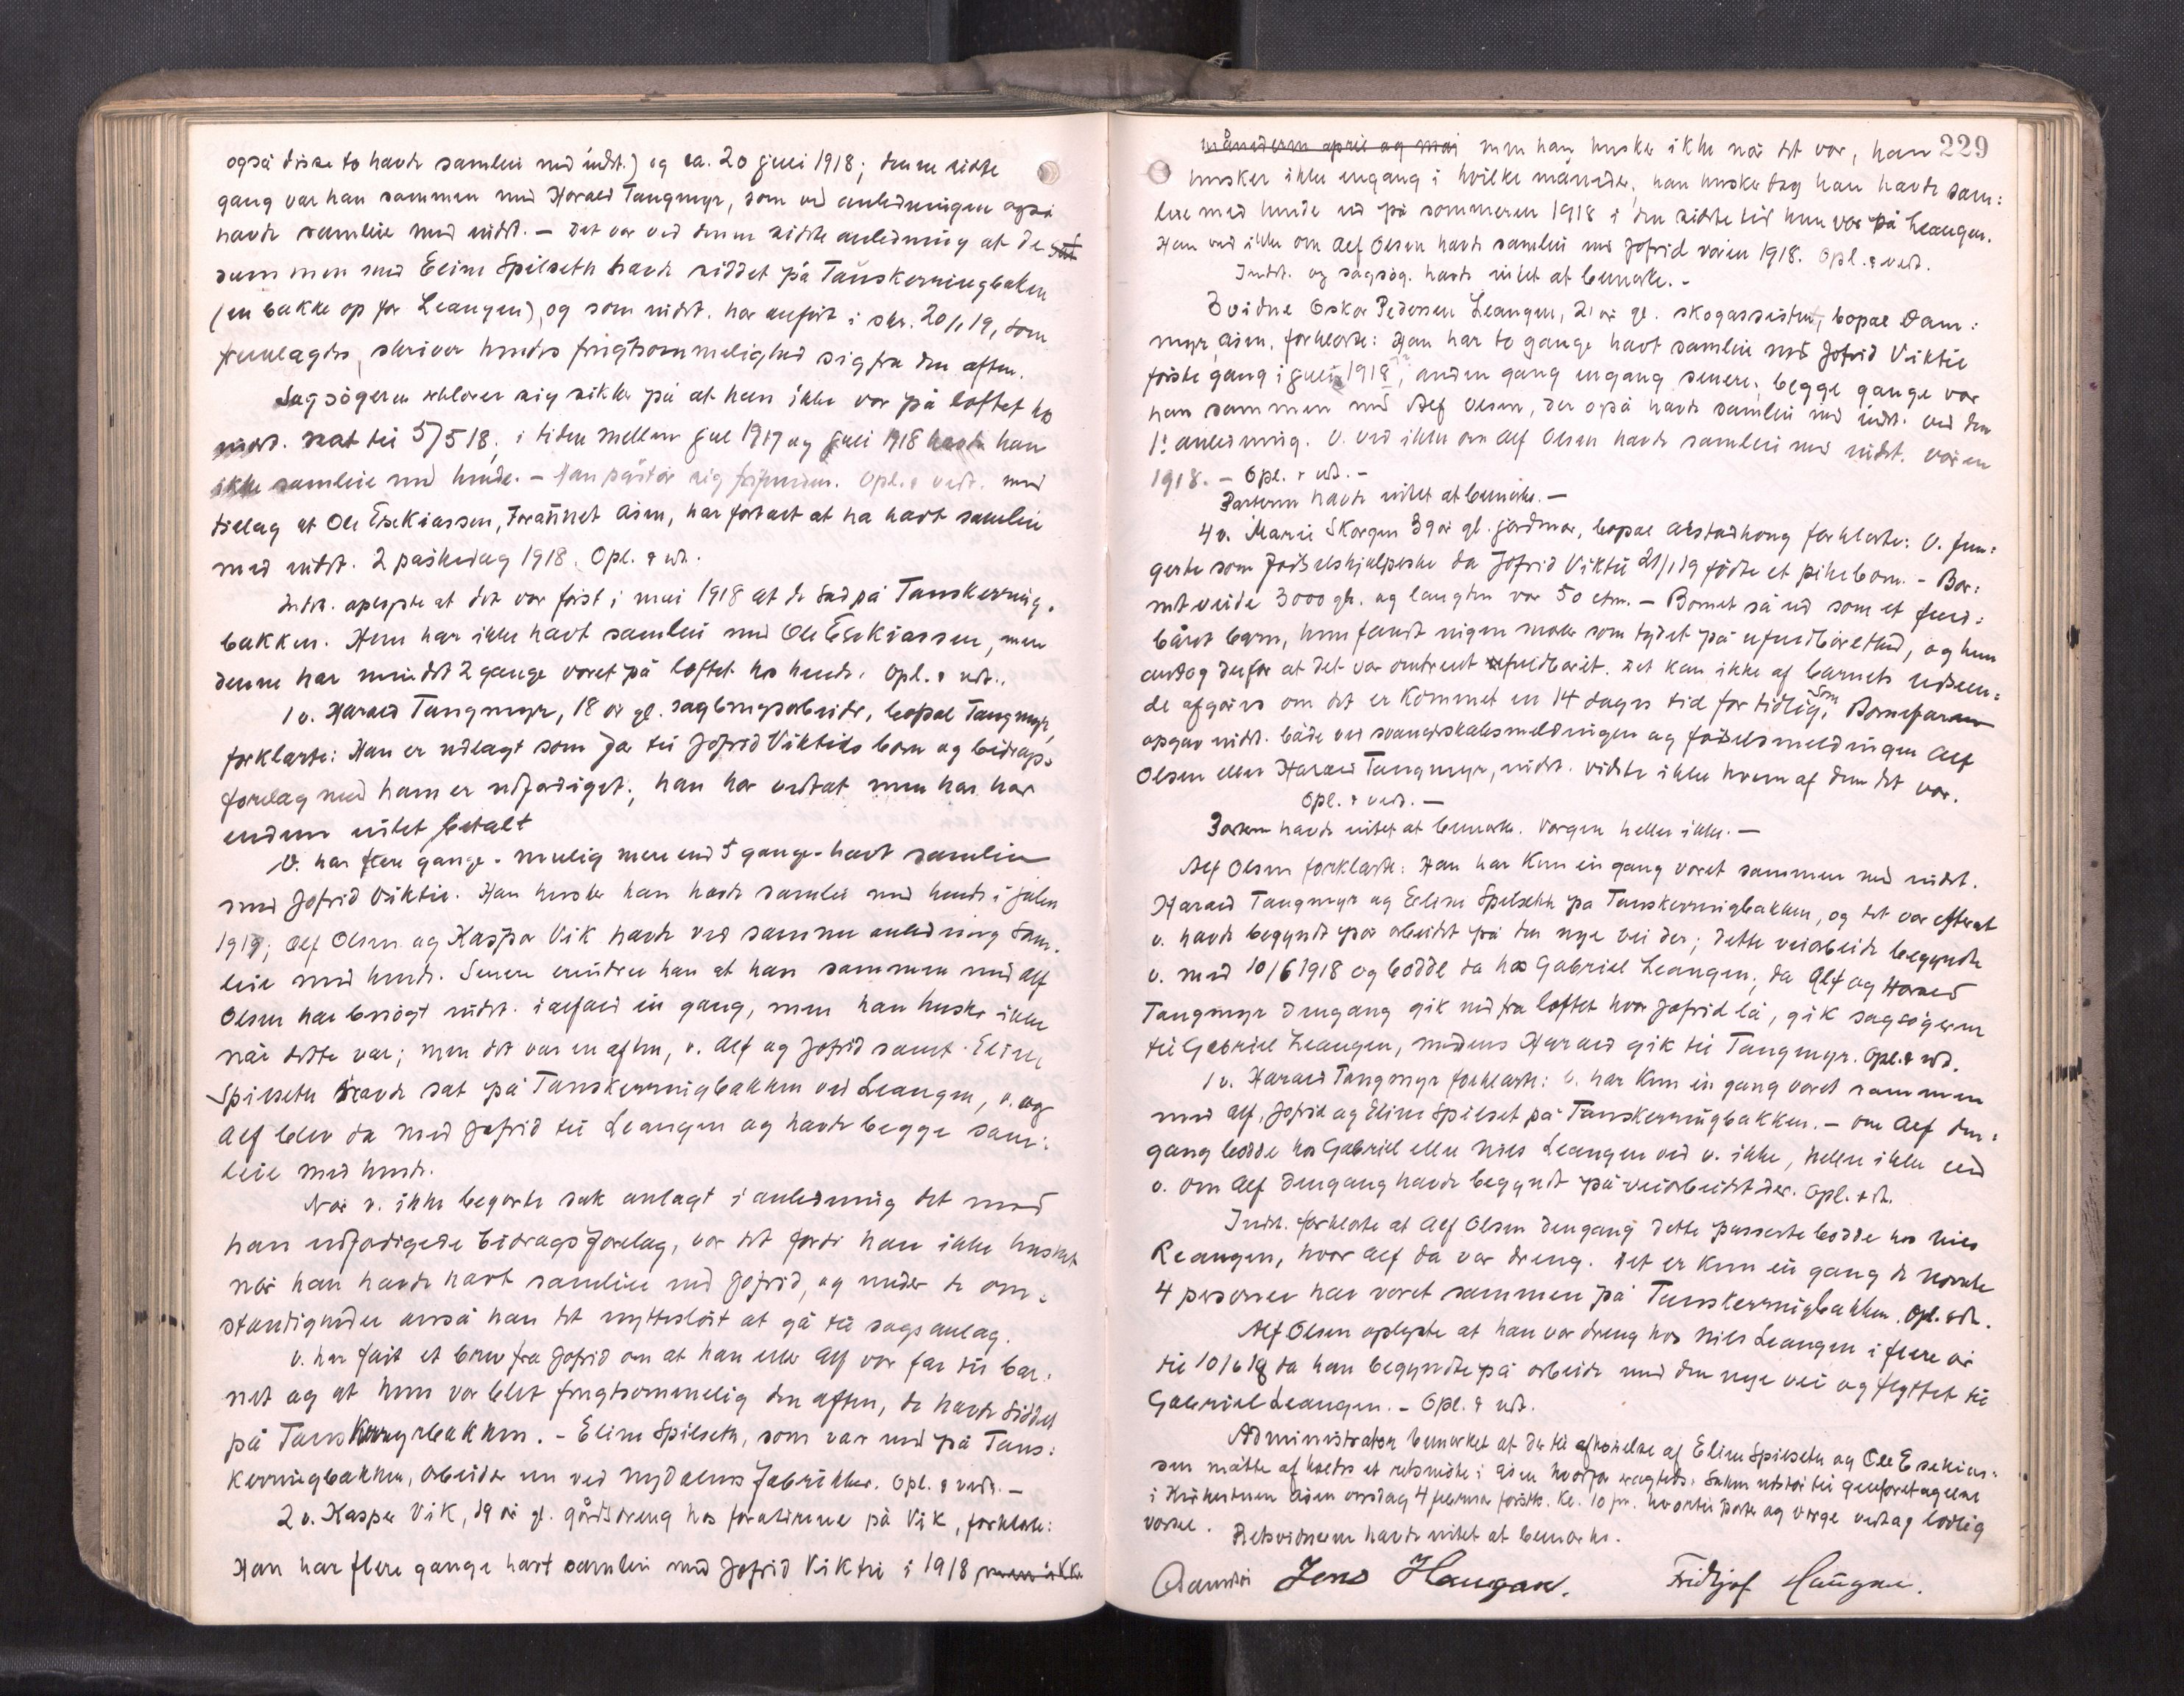 også disse to havde samleie med indst.) og ca. 20 juli 1918; denne sidste
gang var han sammen med Harald Tangmyr, som ved anledningen også
havde samleie med indst. – Det var ved denne sidste anledning at de
sammen med Eline Spilseth havde siddet på Tanskerringbakken
(en bakke op for Leangen), og som indst. har anført i skr. 20/1 19, som
fremlagdes, skriver hendes frugtsommelighed sig fra den aften.
Sagsøgeren erklærer sig sikker på at han ikke var på loftet hos
indst. nat til 5/5 18, i tiden mellem jul 1917 og juli 1918 havde han
ikke samleie med hende. – Han påstår sig frifunden. Opl. & vedt. med
tillæg at Ole Esekiassen, Åsen, har fortalt at ha havt samleie
med indst. 2 påskedag 1918. Opl. & vedt.
Indst. oplyste at det var først i mai 1918 at de sad på Tanskerring-
bakken. Hun har ikke havt samleie med Ole Esekiassen, men
denne har mindst 2 gange været på loftet hos hende. Opl. & vedt.
1 v. Harald Tangmyr, 18 år gl. sagbrugsarbeider, bopæl Tangmyr,
forklarte: Han er udlagt som far til Jofrid Viktils barn og bidrags-
forelæg mod ham er udfærdiget; han har vedtat men han har
endnu intet betalt
V. har flere gange - mulig mere end 5 gange - havt samleie
med Jofrid Viktil. Han husker han havde samleie med hende i julen
1917; Alf Olsen og Kaspar Vik havde ved samme anledning sam-
leie med hende. Senere erindrer han at han sammen med Alf
Olsen har besøgt indst. ialfald én gang, men han husker ikke
når dette var; men det var en aften, v. Alf og Jofrid samt Eline
Spilseth havde sat på Tanskerringbakken ved Leangen, v. og
Alf blev da med Jofrid til Leangen og havde begge sam-
leie med hende.
Når v. ikke begjærte sak anlagt i anledning det mod
han udfærdigede bidragsforelæg, var det fordi han ikke husket
når han havde havt samleie med Jofrid, og under de om-
stændigheder anså han det nytteløst at gå til sagsanlæg.
V. har fåit et brev fra Jofrid om at han eller Alf var far til bar-
net og at hun var blet frugtsommelig den aften, de havde siddet
på Tanskerringbakken. – Eline Spilseth, som var med på Tans-
kerringbakken, arbeider nu ved Nydalens Fabrikker. Opl. & vedt. –
2 v. Kasper Vik, 19 år gl. gårdsdreng hos forældrene på Vik, forklarte:
Han har flere gange havt samleie med Jofrid Viktil i 1918 men ikke
229
månederne april og mai men han husker ikke når det var, han
husker ikke engang i hvilke måneder, han husker dog han havde sam-
leie med hende ud på sommeren 1918 i den sidste tid hun var på Leangen.
Han ved ikke om Alf Olsen havde samleie med Jofrid våren 1918. Opl. & vedt.
Indst. og sagsøg. havde intet at bemerke. –
3 vidne Oskar Pedersen Leangen, 21 år gl. skogassistent, bopæl Dam-
myr, Åsen, forklarte: Han har to gange havt samleie med Jofrid Viktil
første gang i juli 1918, anden gang engang senere; begge gange var
han sammen med Alf Olsen, der også havde samleie med indst. ved den
1ste anledning. V. ved ikke om Alf Olsen havde samleie med indst. våren
1918. – Opl. & vedt. –
Parterne havde intet at bemerke. –
4 v. Marie Skorgen 39 år gl. jordmor, bopæl forklarte: V. fun-
gerte som fødselshjælperske da Jofrid Viktil 21/1 19 fødte et pikebarn. – Bar-
net veide 3000 gr. og længden var 50 ctm. – Barnet så ud som et fuld-
båret barn, hun fandt ingen merker som tydet på ufuldbårethed, og hun
antog derfor at det var omtrent fuldbåret. Det kan ikke af barnets udseen-
de afgøres om det er kommet en 14 dages tid for tidlig. Som Barnefaren
opgav indst. både ved svangerskabsmeldingen og fødselsmeldingen Alf
Olsen eller Harald Tangmyr, indst. vidste ikke hvem af dem det var.
Opl. & vedt. –
Parterne havde intet at bemerke. Værgen heller ikke. –
Alf Olsen forklarte: Han har kun én gang været sammen med indst.
Harald Tangmyr og Eline Spilseth på Tanskerringbakken, og det var efterat
v. havde begyndt på arbeidet på den nye vei der; dette veiarbeide begyndte
v. med 10/6 1918 og bodde da hos Gabriel Leangen; da Alf og Harald
Tangmyr dengang gik ned fra loftet hvor Jofrid lå, gik sagsøgeren
til Gabriel Leangen, medens Harald gik til Tangmyr. Opl. & vedt.
1 v. Harald Tangmyr forklarte: V. har kun én gang været sammen
med Alf, Jofrid og Eline Spilset på Tanskerringbakken. – Om Alf den-
gang bodde hos Gabriel eller Nils Leangen ved v. ikke, heller ikke ved
v. om Alf dengang havde begyndt på veiarbeidet der. Opl. & vedt.
Indst. forklarte at Alf Olsen dengang dette passerte bodde hos Nils
Leangen, hvor Alf da var dreng. Det er kun én gang de nævnte
4 personer har været sammen på Tanskerringbakken. Opl. & vedt.
Alf Olsen oplyste at han var dreng hos Nils Leangen i flere år
til 10/6 18 da han begyndte på arbeide med den nye vei og flyttet til
Gabriel Leangen. – Opl. & vedt.
Administrator bemerket at der til afhørelse af Eline Spilseth og Ole Esekias-
sen måtte afholdes et retsmøde i Åsen hvorfor eragtedes: Saken utstår til gjenforetagelse
i Åsen onsdag 4 februar førstk. kl. 10 fm. hvortil parter og værge vedtog lovlig
varsel. Retsvidnerne havde intet at bemerke.
Jens Haugan. Fridtjof Haugan.